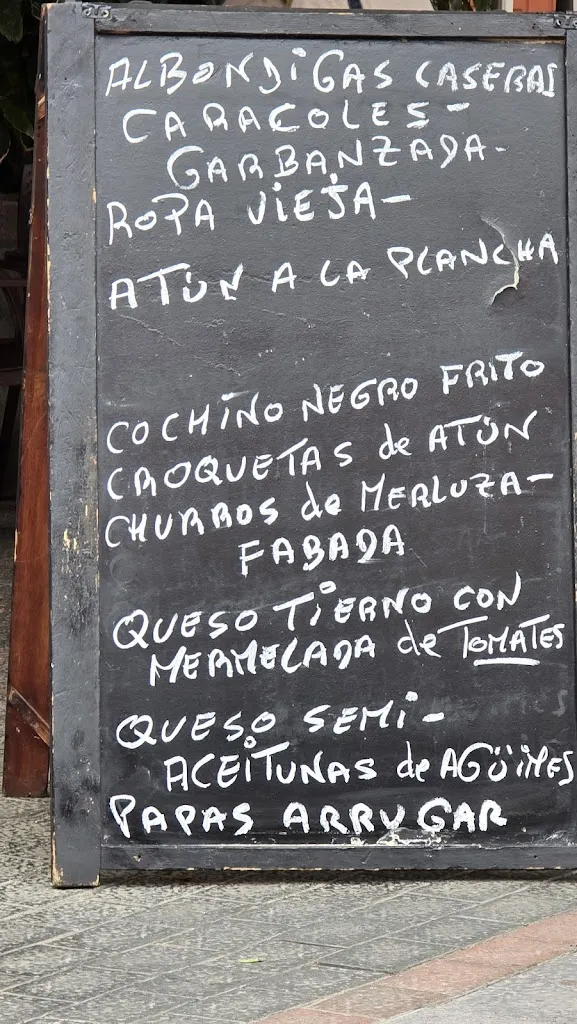 ALBONDIGAS CASERAS
CARACOLES-
GARBANZADA-
ROPA VIEJA-
ATÚN A LA PLANCHA
COCHINO NEGRO FRITO
CROQUETAS de ATÚN
CHURROS de MERLUZA-
FABADA
QUESO TIERNO CON
MERMELADA de TOMATES
QUESO SEMI-
ACEITUNAS de AGÜIMES
PAPAS ARRUGAR